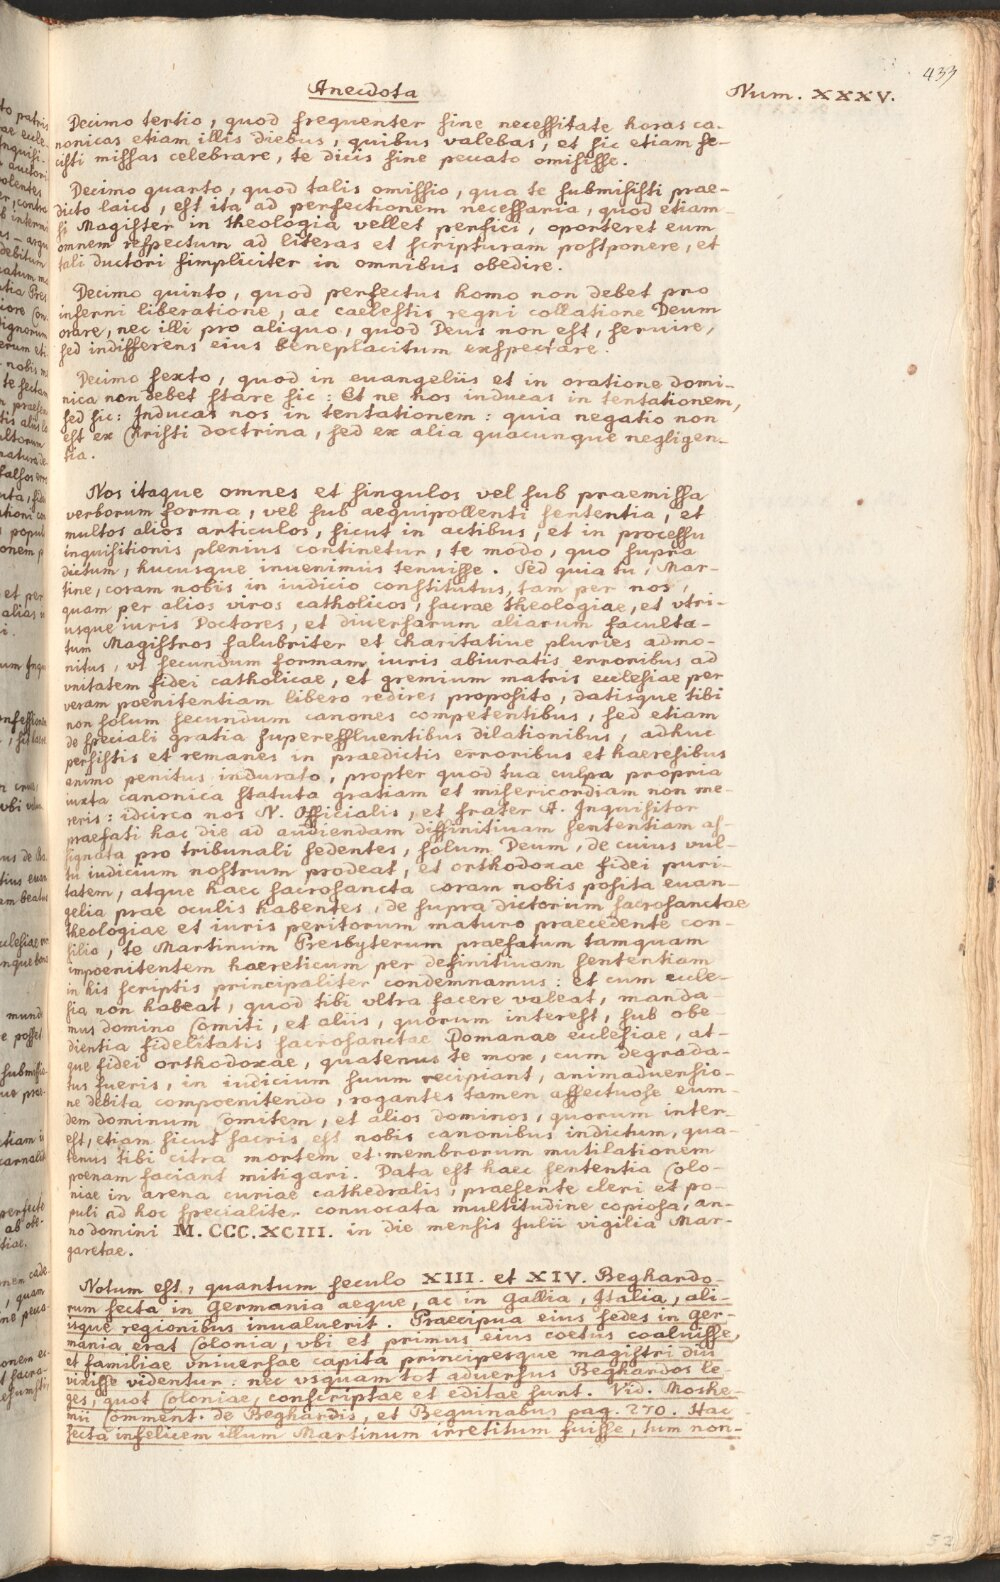 433
Anecdota
Num. XXXV.
Decimo tertio, quod frequenter sine necessitate horas ca-
nonicas etiam illis diebus, quibus valebas, et sic etiam fe-
cisti missas celebrare, te dicis sine peccato omisisse.
Decimo quarto, quod talis omissio, qua te submisisti prae-
dicto laico, est ita ad perfectionem necessaria, quod etiam-
si Magister in theologia vellet perfici, oporteret eum
omnem respectum ad literas et scripturam postponere, et
tali ductori simpliciter in omnibus obedire.
Decimo quinto, quod perfectus homo non debet pro
inferni liberatione, ac caelestis regni collatione Deum
orare, nec illi pro aliquo, quod Deus non est, servire,
sed indifferens eius beneplacitum exspectare.
Decimo sexto, quod in euangeliis et in oratione domi-
nica non debet stare sic: Et ne nos inducas in tentationem,
sed sic: Inducas nos in tentationem: quia negatio non
est ex Christi doctrina, sed ex alia quacunque negligen-
tia.
Nos itaque omnes et singulos vel sub praemissa
verborum forma, vel sub aequipollenti sententia, et
multos alios articulos, sicut in actibus, et in processu
inquisitionis plenius continetur, te modo, quo supra
dictum, hucusque invenimus tenuisse. Sed quia tu, Mar-
tine, coram nobis in iudicio constitutus, tam per nos,
quam per alios viros catholicos, sacrae theologiae, et vtri-
usque iuris Doctores, et diversarum aliarum faculta-
tum Magistros salubriter et charitative pluries admo-
nitus, vt secundum formam iuris abiuratis erroribus ad
vnitatem fidei catholicae, et gremium matris ecclesiae per
veram poenitentiam libero redires proposito, datisque tibi
non solum secundum canones competentibus, sed etiam
de speciali gratia supereffluentibus dilationibus, adhuc
persistis et remanes in praedictis erroribus et haeresibus
animo penitus indurato, propter quod tua culpa propria
iuxta canonica statuta gratiam et misericordiam non me-
reris: idcirco nos N. Officialis, et frater A. Inquisitor
praefati hac die ad audiendam diffinitivam sententiam as-
signata pro tribunali sedentes, solum Deum, de cuius vul-
tu iudicium nostrum prodeat, et orthodoxae fidei puri-
tatem, atque haec sacrosancta coram nobis posita euan-
gelia prae oculis habentes, de supra dictorum sacrosanctae
theologiae et iuris peritorum maturo praecedente con-
silio, te Martinum Presbyterum praefatum tamquam
impoenitentem haereticum per definitivam sententiam
in his scriptis principaliter condemnamus: et cum eccle-
sia non habeat, quod tibi vltra facere valeat, manda-
mus domino Comiti, et aliis, quorum interest, sub obe-
dientia fidelitatis sacrosanctae Romanae ecclesiae, at-
que fidei orthodoxae, quatenus te mox, cum degrada-
tus fueris, in iudicium suum recipiant, animadversio-
ne debita compoenitendo, rogantes tamen affectuose eum-
dem dominum Comitem, et alios dominos, quorum inter-
est, etiam sicut sacris est nobis canonibus indictum, qua-
tenus tibi citra mortem et membrorum mutilationem
poenam faciant mitigari. Data est haec sententia Colo-
niae in arena curiae cathedralis, praesente cleri et po-
puli ad hoc specialiter convocata multitudine copiosa, an-
no domini M.CCC.XCIII. in die mensis Julii vigilia Mar-
garetae.
Notum est, quantum seculo XIII. et XIV. Beghardo-
rum secta in Germania aeque, ac in Gallia, Italia, ali-
isque regionibus invaluerit. Praecipua eius sedes in Ger-
mania erat Colonia, vbi et primus eius coetus coaluisse,
et familiae vniversae capita principesque magistri diu
vixisse videntur: nec vsquam tot adversus Beghardos le-
ges, quot Coloniae, conscriptae et editae sunt. Vid. Moshe-
mii Comment. de Beghardis, et Beguinabus pag. 270. Hac
secta infelicem illum Martinum irretitum fuisse, tum non-